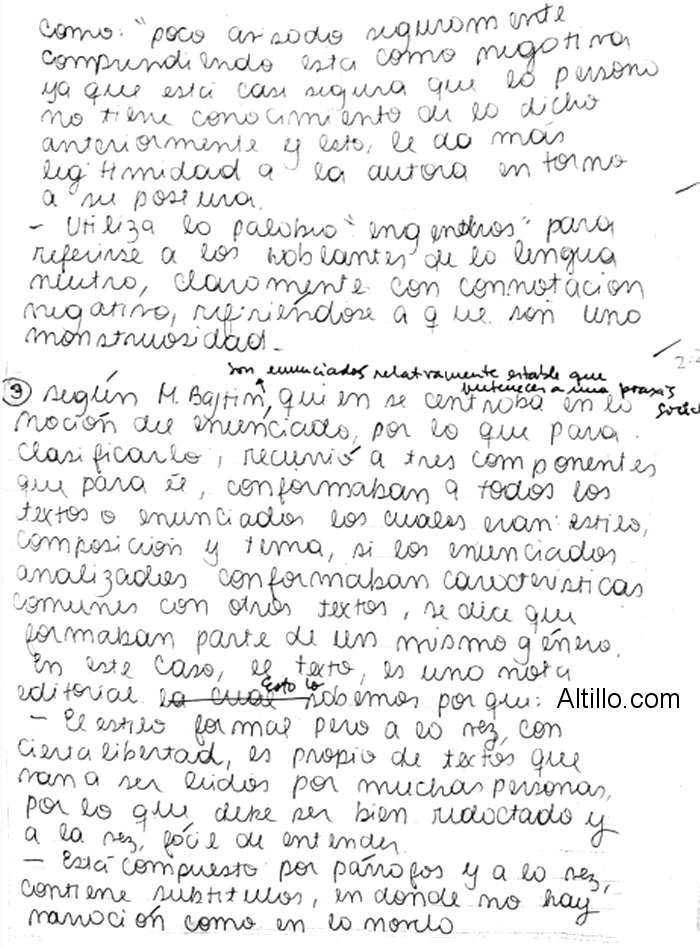 como: "poco avisado seguramente
comprendiendo esta como negativa
ya que está casi segura que la persona
no tiene conocimiento de lo dicho
anteriormente y esto, le da más
legitimidad a la autora en torno
a su postura.
- Utiliza la palabra "engendros" para
referirse a los hablantes de la lengua
neutra, claramente con connotación
negativa, refiriéndose a que son una
monstruosidad.
2:2
son enunciados relativamente estable que
pertenece a una praxis
social
3 según M. Bajtin, quien se centraba en la
noción de enunciado, por lo que para
clasificarlo, recurrió a tres componentes
que para él, conformaban a todos los
textos o enunciados los cuales eran: estilo,
composición y tema, si los enunciados
analizados conformaban características
comunes con otros textos, se dice que
formaban parte de un mismo género.
En este caso, el texto, es una nota
Esto lo
editorial la cual sabemos por que: Altillo.com
- El estilo formal pero a la vez, con
cierta libertad, es propio de textos que
van a ser leídos por muchas personas,
por lo que debe ser bien redactado y
a la vez, fácil de entender.
- Está compuesto por párrafos y a la vez,
contiene subtítulos, en donde no hay
narración como en la novela